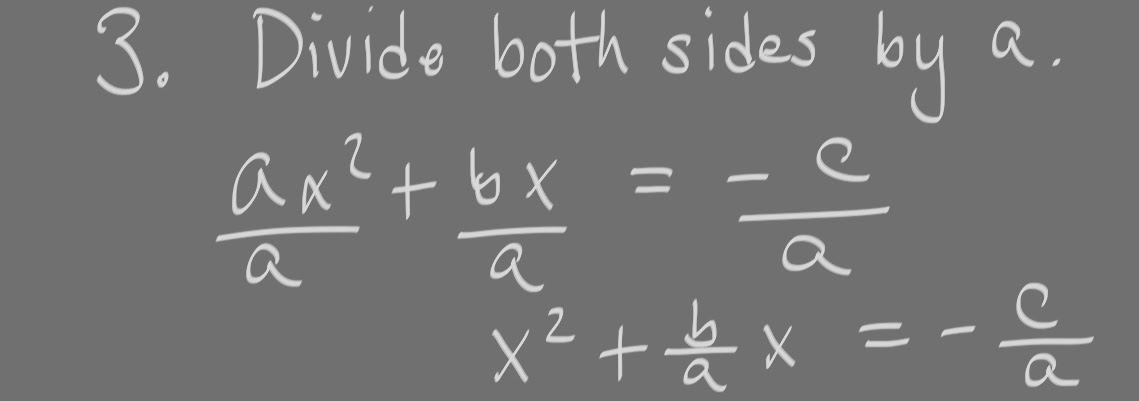 3. Divide both sides by a.
ax²/a + bx/a = -c/a
x² + b/a x = - c/a